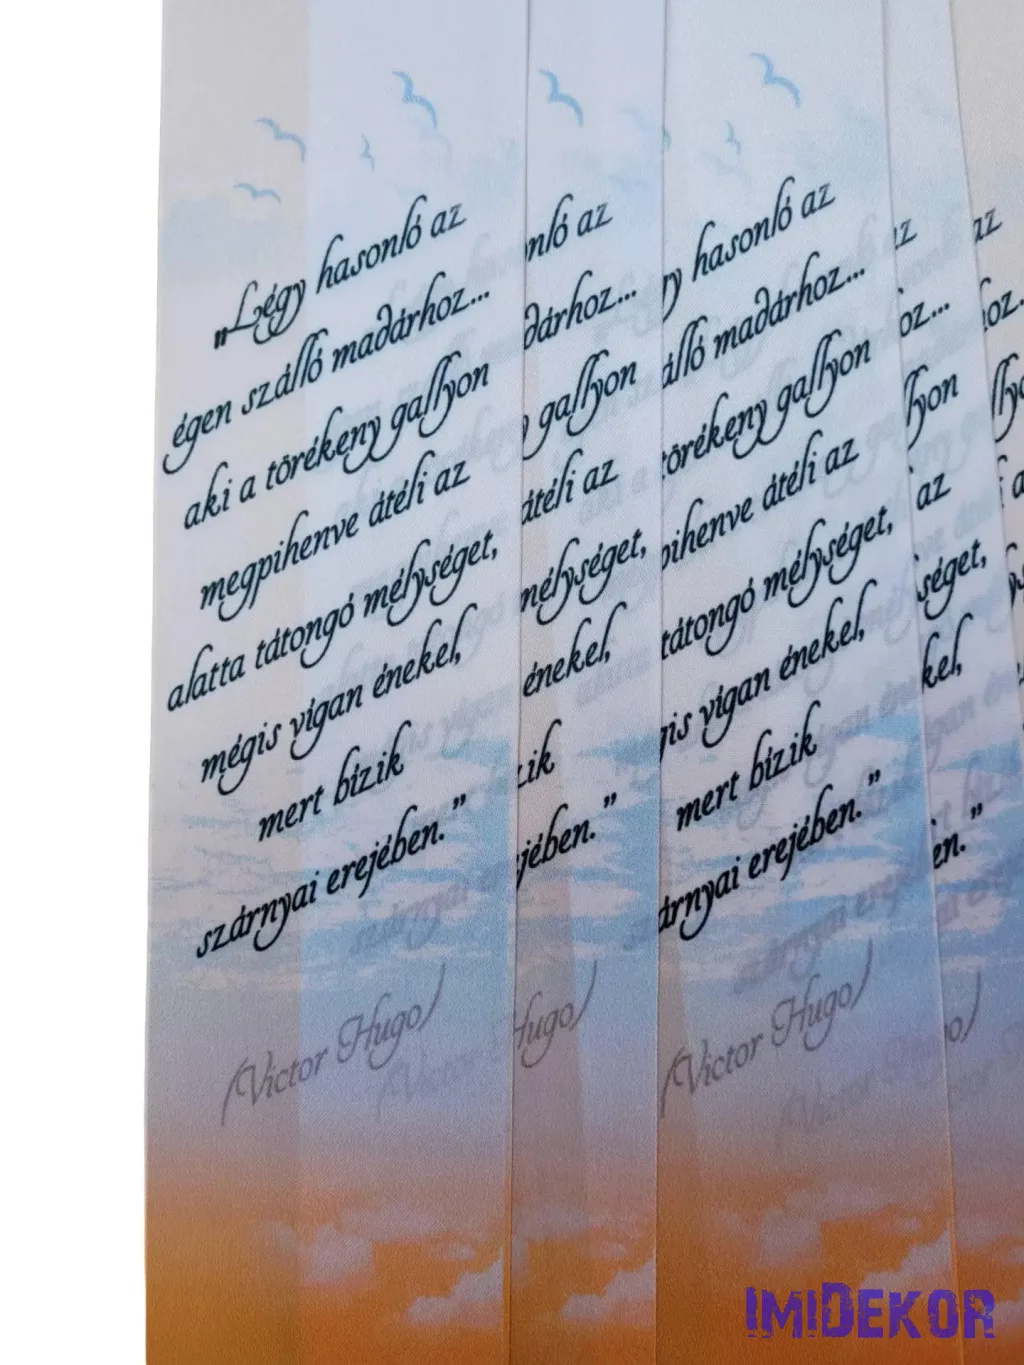 „Légy hasonló az
égen szálló madárhoz...
aki a törékeny gallyon
megpihenve átéli az
alatta tátongó mélységet,
mégis vígan énekel,
mert bízik
szárnyai erejében.”
(Victor Hugo)
nló az
dárhoz...
gallyon
átéli az
mélységet,
énekel,
zik
ejében.”
Hugo)
gy hasonló az
álló madárhoz...
törékeny gallyon
pihenve átéli az
tátongó mélységet,
gis vígan énekel,
mert bízik
árnyai erejében.”
(Victor Hugo)
az
oz...
lyon
az
séget,
kel,
en.”
az
IMIDEKOR